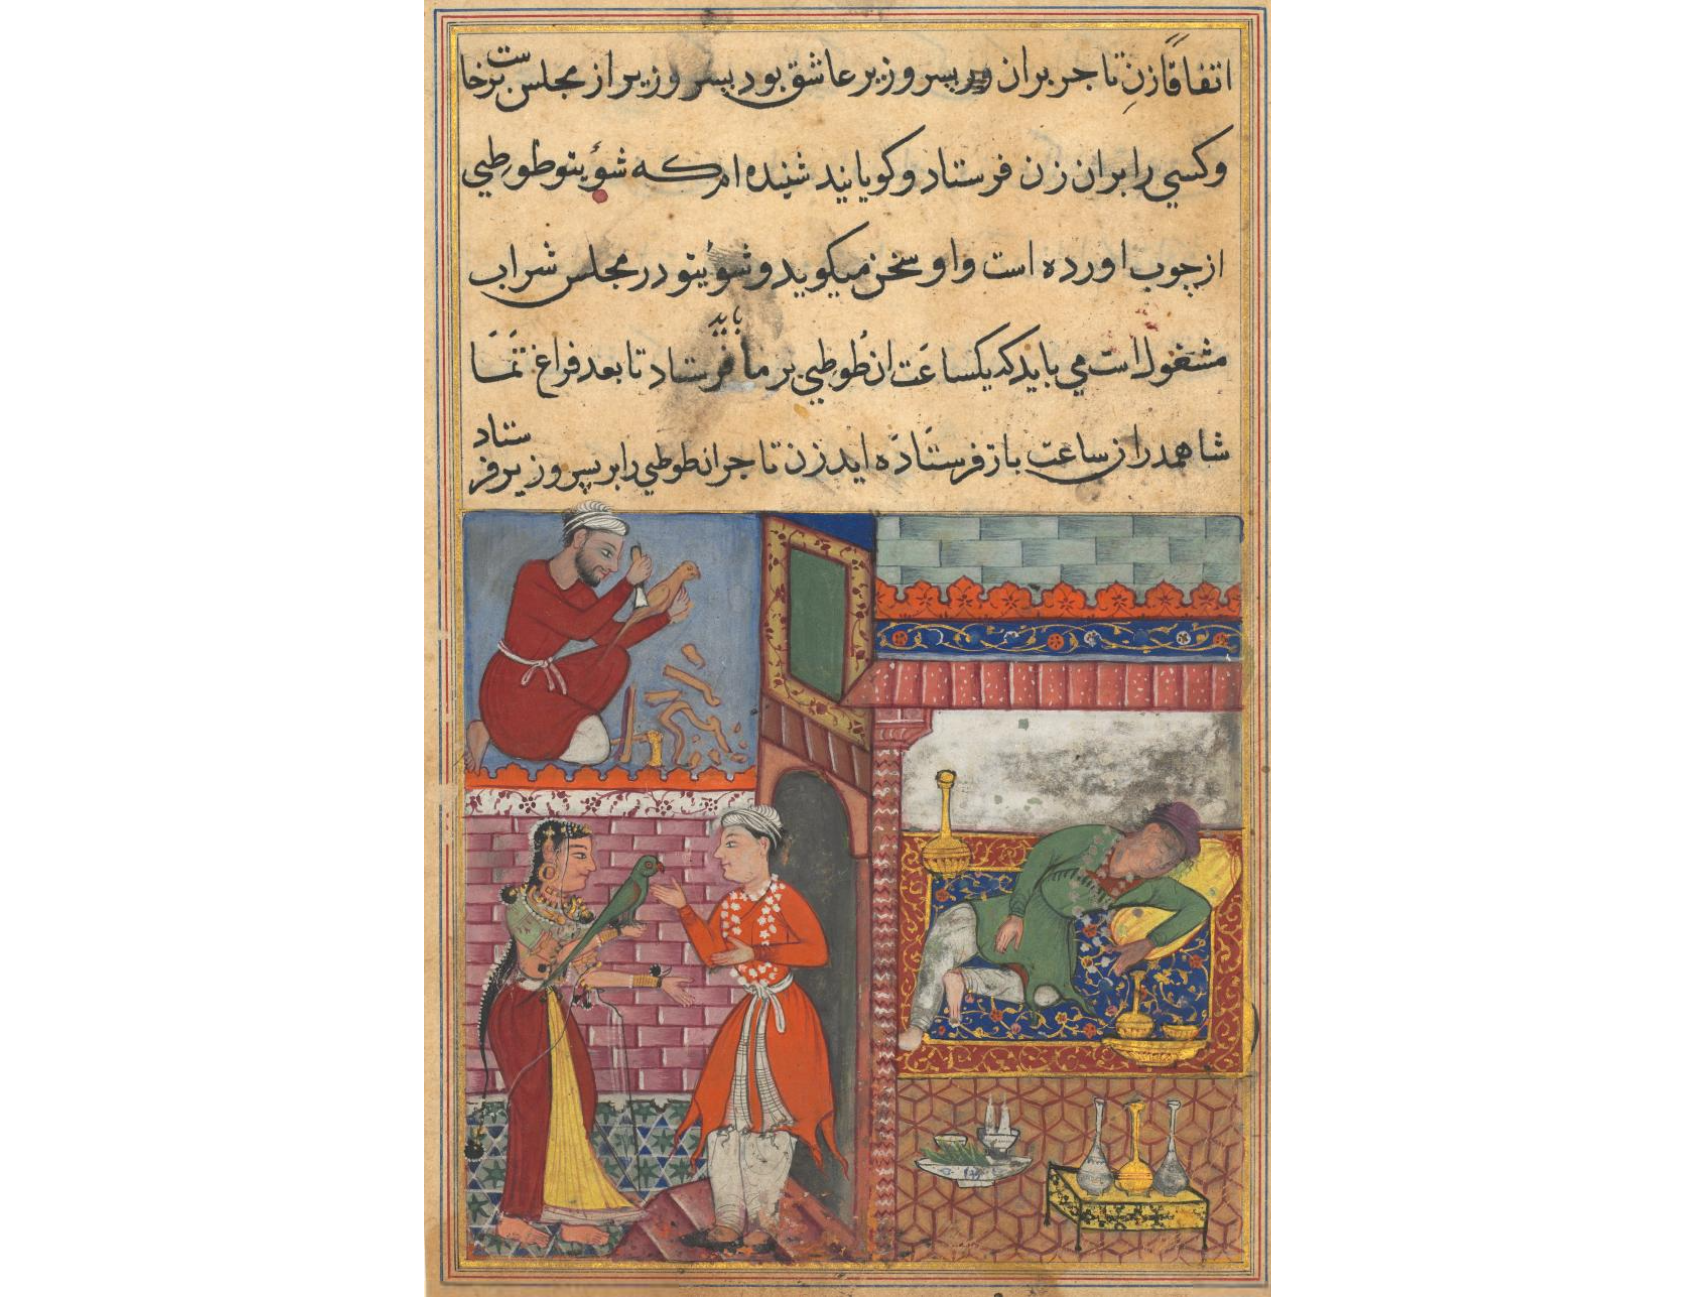 اتفاقًا زنِ تاجر بران ور پسر وزیر عاشق بود پسر وزیر از مجلس برخاست
وکسي را بران زن فرستاد و کویانید شنیده ام که شوُیتو طوطیي
از چوب اورده است واو سخن میکوید و شوُیتو در مجلس شراب
مشغول است مي باید که یکساعَت ان طُوطیي بر ما باید فرستاد تا بعد فراغ تَمَاشا
همدران ساعت باز فرستَادَه اید زن تاجر انطوطیي را بر پسر وزیر فرستاد